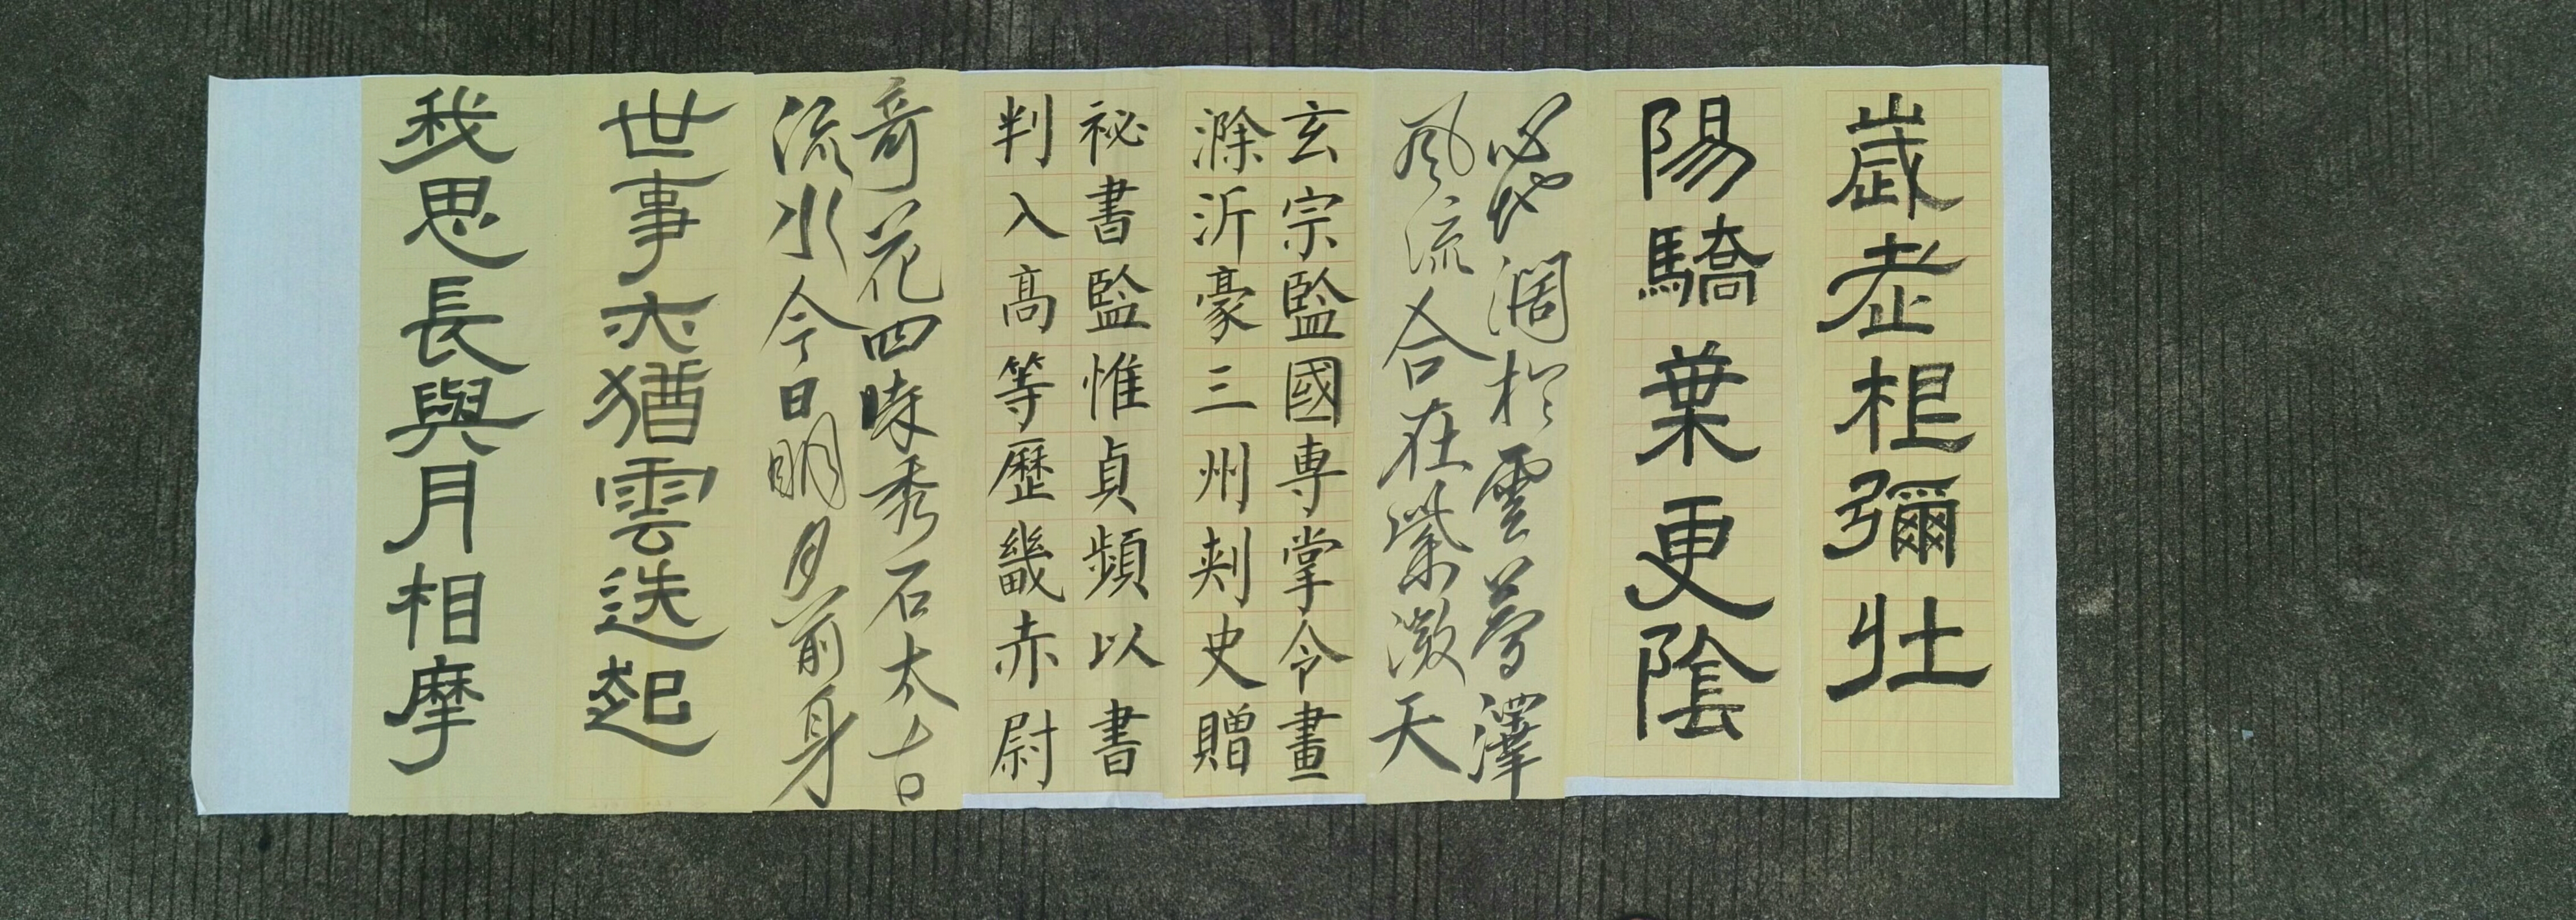 歲老根彌壯
陽驕葉更陰
心地闊於雲夢澤
風流合在紫微天
玄宗監國專掌令畫
滁沂豪三州刾史贈
祕書監惟貞頻以書
判入高等歷畿赤尉
奇花四時秀石太古
流水今日明月前身
世事亦猶雲迭起
我思長與月相摩